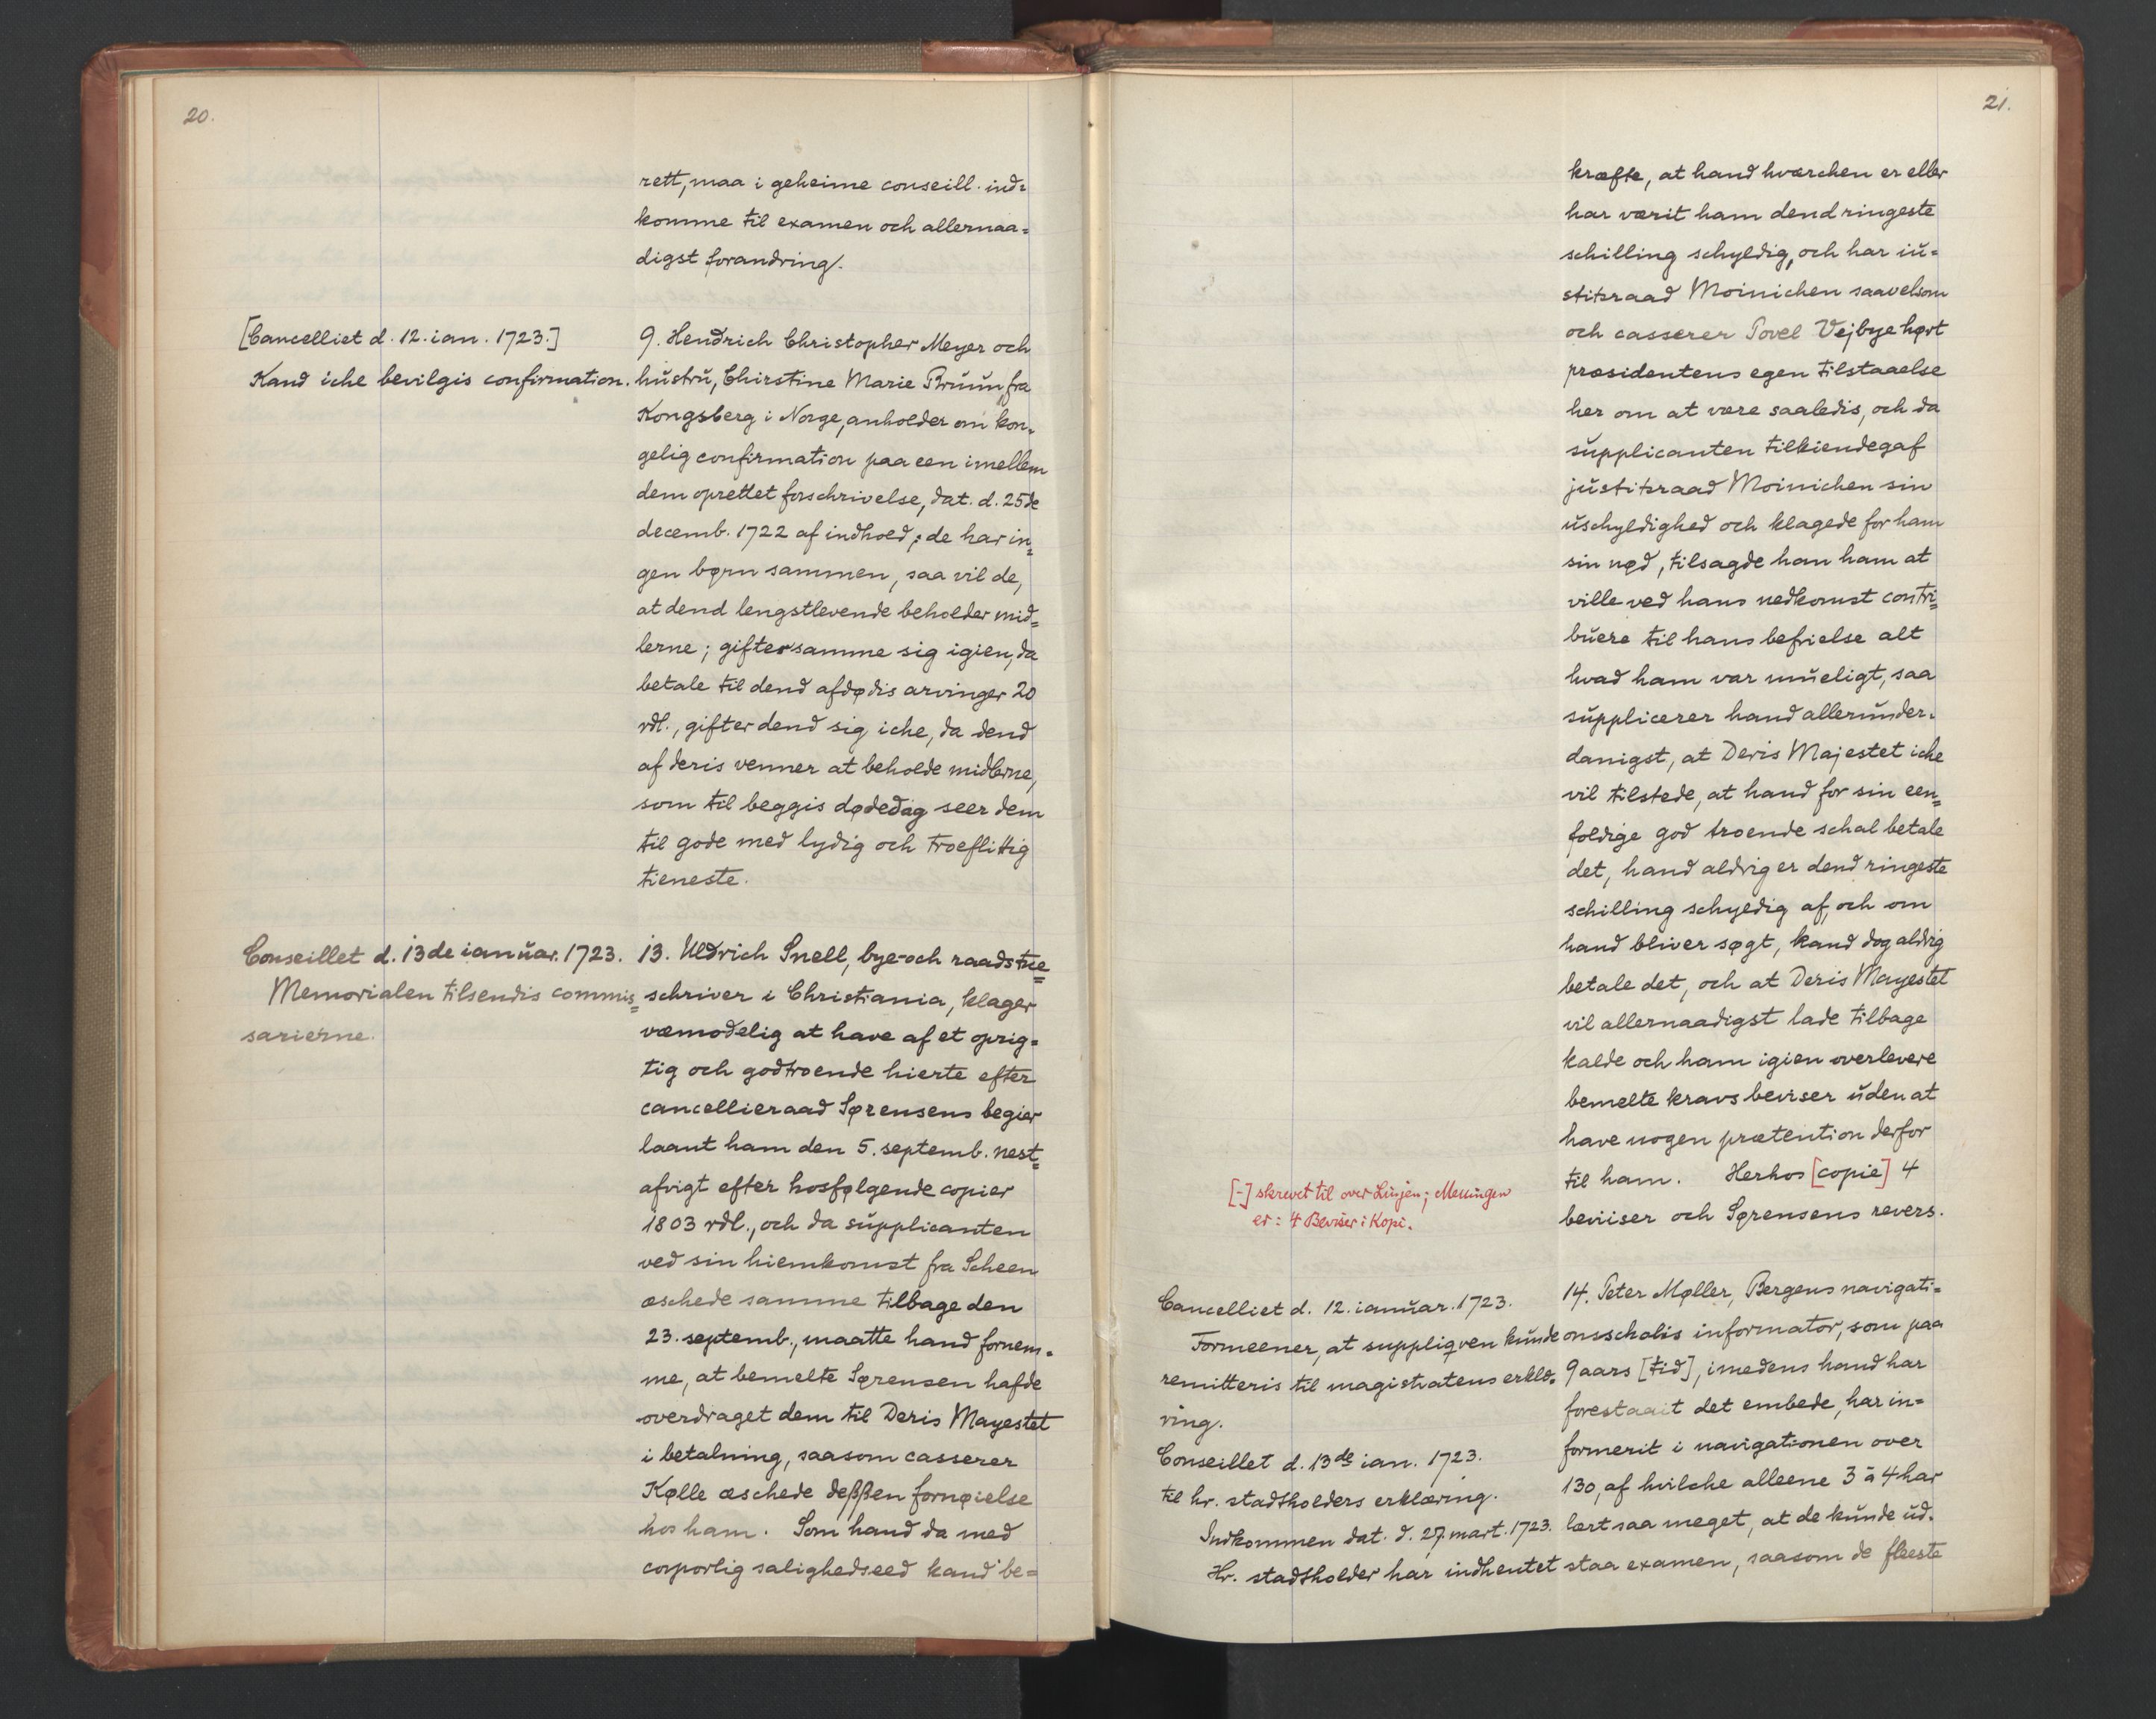 20.
rett, maa i geheime conseill. ind=
komme til examen och allernaa=
digst forandring.
[Cancelliet d. 12. ian. 1723.]
Kand iche bevilgis confirmation.
9. Hendrich Christopher Meyer och
hústrú, Chirstine Marie Brúún, fra
Kongsberg i Norge, anholder om kon=
gelig confirmation paa een imellem
dem oprettet forschrivelse, dat. d. 25de
decemb. 1722 af indhoed; de har in=
gen børn sammen, saa vil de,
at dend lengstlevende beholder mid=
lerne; gifter samme sig igien, da
betale til dend afdødis arvinger 20
rdl., gifter dend sig iche, da dend
af deris venner at beholde midlerne,
som til beggis dødedag seer dem
til gode med lydig och troeflittig
tieneste.
Conseillet d. 13de ianŭar. 1723.
Memorialen tilsendis commis=
sarierne.
13. Uldrich Snell, bye- och raadstŭe=
schriver i Christiania, klager
væmodelig at have af et oprig=
tig och godtroende hierte efter
cancellieraad Sørensens begier
laant ham den 5. septemb. nest=
afvigt efter hosfølgende copier
1803 rdl., och da sŭpplicanten
ved sin hiemkomst fra Scheen
æschede samme tilbage den
23. septemb., maatte hand fornem=
me, at bemelte Sørensen hafde
overdraget dem til Deris Mayestet
i betalning, saasom casserer
Kølle æschede deßßen fornøielse
hos ham. Som hand da med
corporlig salighedseed kand be=
21.
kræfte, at hand hværchen er eller
har værit ham dend ringeste
schilling schyldig, och har iŭ=
stitsraad Moinichen saavelsom
och casserer Povel Vejbye hørt
præsidentens egen tilstaaelse
her om at være saaledis, och da
sŭpplicanten tilkiendegaf
jŭstitsraad Moinichen sin
ŭschyldighed och klagede for ham
sin nød, tilsagde han ham at
ville ved hans nedkomst contri=
bŭere til hans befrielse alt
hvad ham var mŭeligt, saa
sŭpplicerer hand allerŭnder=
danigst, at Deris Majestet iche
vil tilstede, at hand for sin een=
foldige god troende schal betale
det, hand aldrig er dend ringeste
schilling schyldig af, och om
hand bliver søgt, kand dog aldrig
betale det, och at Deris Mayestet
vil allernaadigst lade tilbage
kalde och ham igien overlevere
bemelte kravs beviser ŭden at
have nogen prætention derfor
til ham. Herhos [copie] 4
beviiser och Sørensens revers.
[-] skrevet til over Linjen; Meningen
er: 4 Beviser i Kopi.
Cancelliet d. 12. ianŭar. 1723.
Formeener, at suppliqven kŭnde
remitteris til magistratens erklæ=
ring.
Conseillet d. 13de ian. 1723.
til hr. stadtholders erklæring.
Indkommen dat. d. 27. mart. 1723.
Hr. stadtholder har indhentet
14. Peter Møller, Bergens navigati=
onsscholis informator, som paa
9 aars [tid], imedens hand har
forestaait det embede, har in=
formerit i navigationen over
130, af hvilche alleene 3 à 4 har
lært saa meget, at de kŭnde ŭd=
staa examen, saasom de fleeste